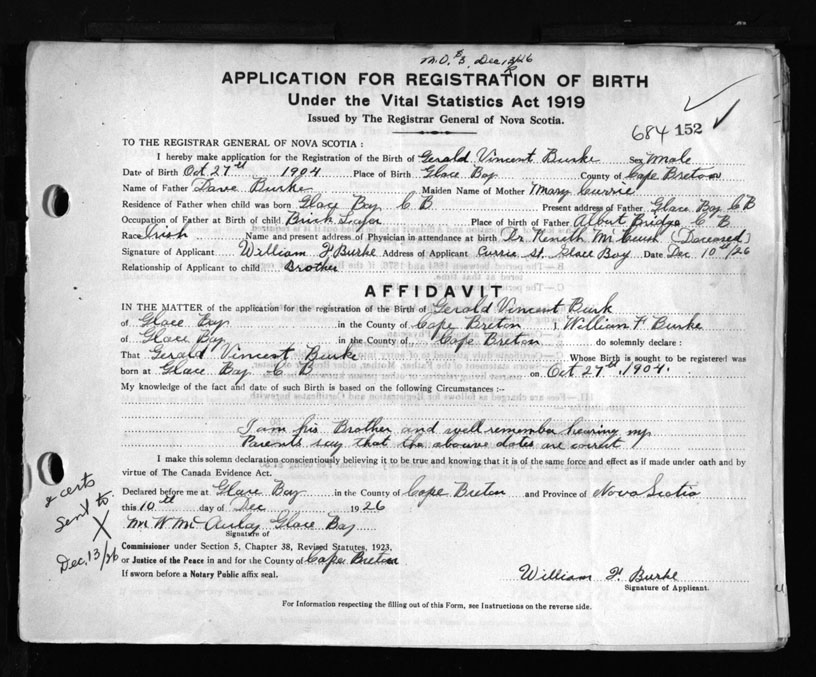 M.O. $3. Dec. 13/26
APPLICATION FOR REGISTRATION OF BIRTH
Under the Vital Statistics Act 1919
Issued by The Registrar General of Nova Scotia.
684 152
TO THE REGISTRAR GENERAL OF NOVA SCOTIA :
I hereby make application for the Registration of the Birth of Gerald Vincent Burke Sex Male
Date of Birth Oct 27th 1904 Place of Birth Glace Bay County of Cape Breton
Name of Father Dave Burke Maiden Name of Mother Mary Currie
Residence of Father when child was born Glace Bay C B Present address of Father Glace Bay C B
Occupation of Father at Birth of child Brick Layer Place of birth of Father Albert Bridge C B
Race Irish Name and present address of Physician in attendance at birth Dr. Keneth (Deceased)
Signature of Applicant William F Burke Address of Applicant Currie St. Glace Bay Date Dec 10th/26
Relationship of Applicant to child Brother
AFFIDAVIT
IN THE MATTER of the application for the registration of the Birth of Gerald Vincent Burk
of Glace Bay in the County of Cape Breton I William F Burke
of Glace Bay in the County of Cape Breton do solemnly declare :
That Gerald Vincent Burke Whose Birth is sought to be registered was
born at Glace Bay C B on Oct 27th, 1904.
My knowledge of the fact and date of such Birth is based on the following Circumstances :-
I am his Brother and well remember hearing my
Parents say that the above dates are correct
I make this solemn declaration conscientiously believing it to be true and knowing that it is of the same force and effect as if made under oath and by
virtue of The Canada Evidence Act.
Declared before me at Glace Bay in the County of Cape Breton and Province of Nova Scotia
this 10th day of Dec 1926
M W McAulay Glace Bay
Signature of
Commissioner under Section 5, Chapter 38, Revised Statutes, 1923.
or Justice of the Peace in and for the County of Cape Breton
If sworn before a Notary Public affix seal.
William F. Burke
Signature of Applicant.
For Information respecting the filling out of this Form, see Instructions on the reverse side.
2 certs
sent to
X
Dec. 13/26